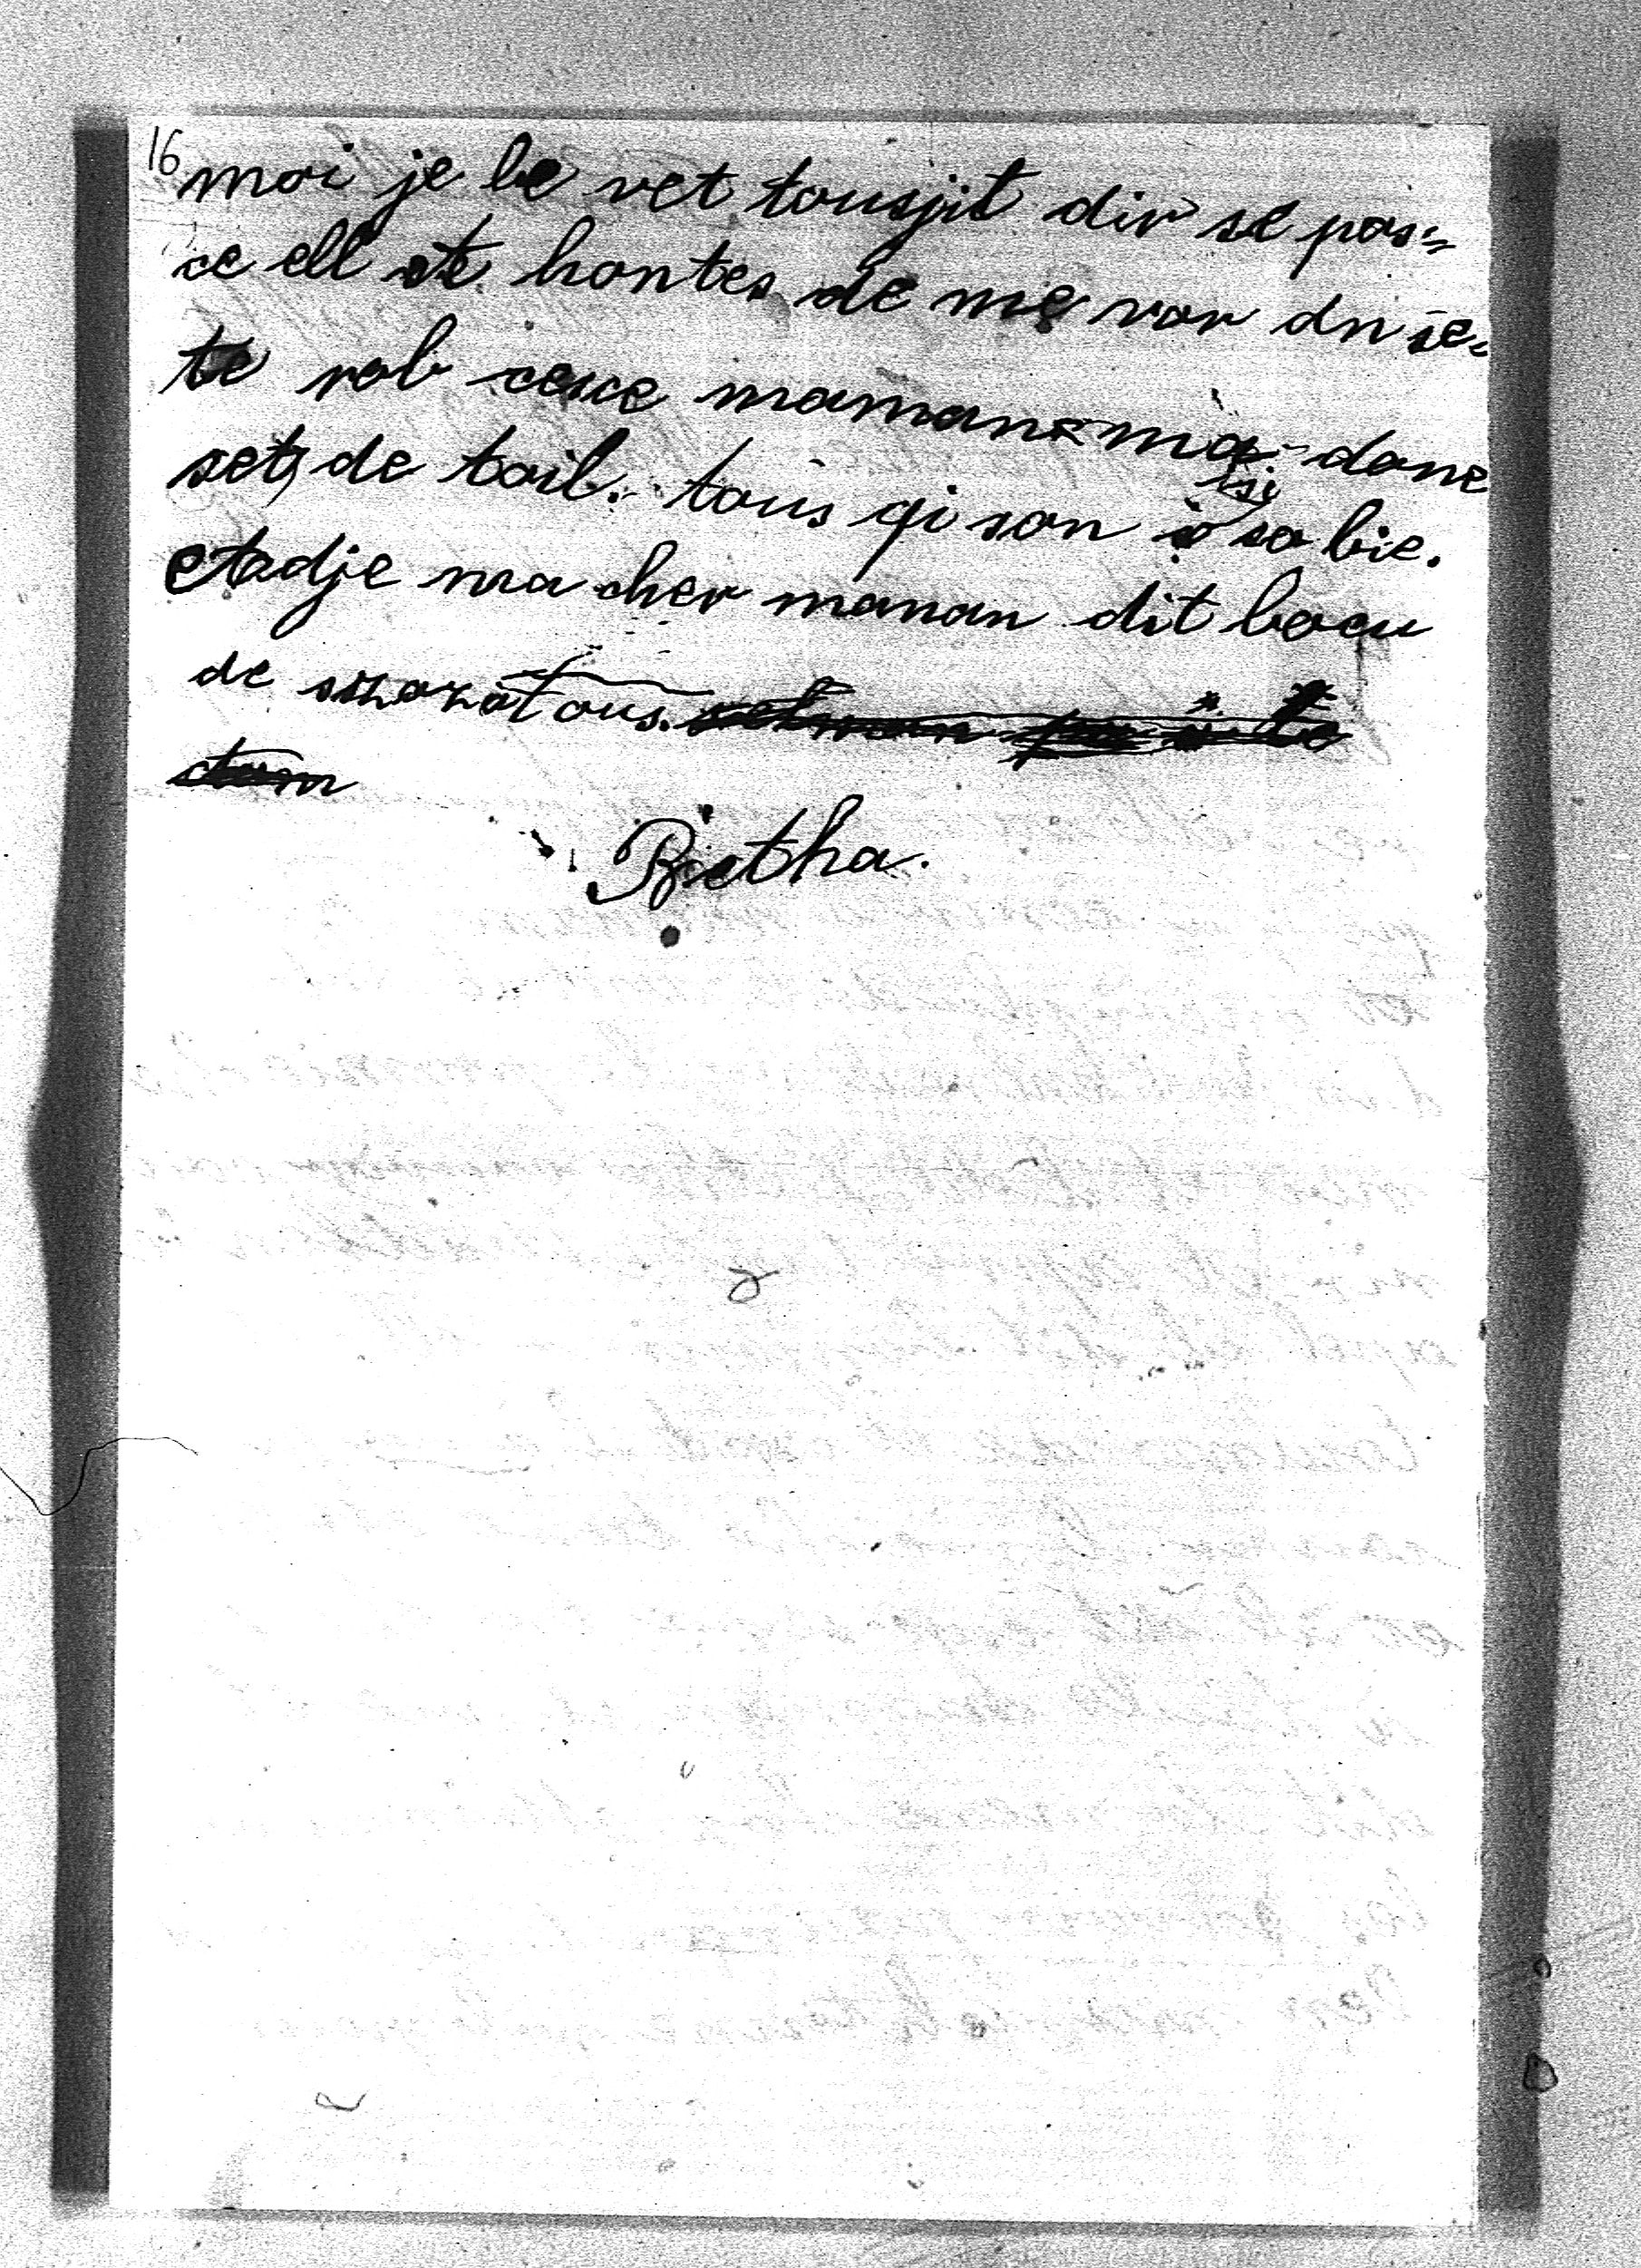 16
moi je le vet tousjit dir se pas=
ce ell ete hontes de me vor dn se=
te rob cesce maman ma done
set, de toil. tous qi son isi sa bie.
etadje ma cher maman dit bocu
de sszozatous.
Rietha.